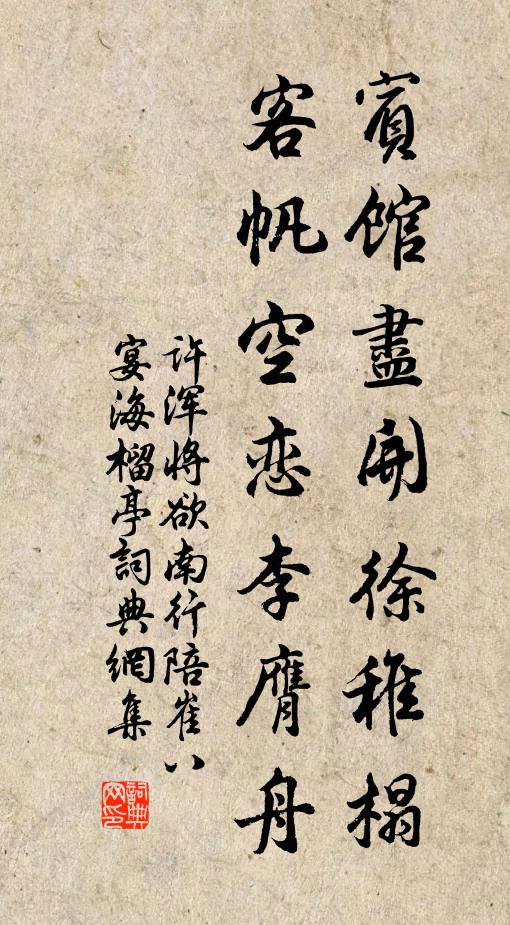 賓館盡開徐稚榻
客帆空恋李膺舟
许浑将欲南行陪崔八
宴海榴亭詞典網集
詞典
网印